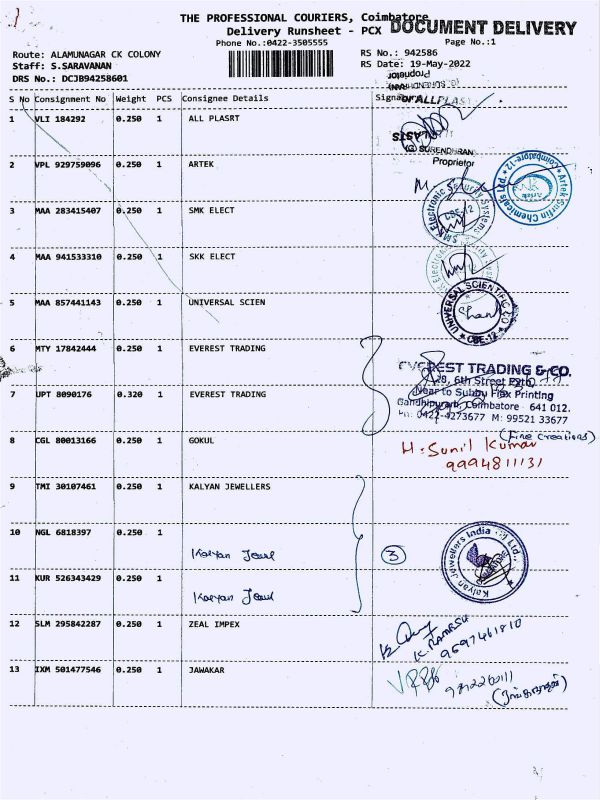 THE PROFESSIONAL COURIERS, Coimbatore
DOCUMENT DELIVERY
Delivery Runsheet - PCX
Phone No.:0422-3505555
Page No.:1
Route: ALAMUNAGAR CK COLONY
RS No.: 942586
Staff: S.SARAVANAN
RS Date: 19-May-2022
DRS No.: DCJB94258601
Proprietor
S No Consignment No Weight PCS Consignee Details Signature
1 VLI 184292 0.250 1 ALL PLASRT
SURENDHRAN
Proprietor
2 VPL 929759096 0.250 1 ARTEK
Artek Surfin Chemicals Ltd. Coimbatore-12
3 MAA 283415407 0.250 1 SMK ELECT
SMK Electronic Security Systems CBE-12
4 MAA 941533310 0.250 1 SKK ELECT
5 MAA 857441143 0.250 1 UNIVERSAL SCIEN
UNIVERSAL SCIENTIFIC CO CBE-12
6 MTY 17842444 0.250 1 EVEREST TRADING
EVEREST TRADING & CO.
6th Street
7 UPT 8090176 0.320 1 EVEREST TRADING
Near to Subbu Flex Printing
Gandhipuram, Coimbatore 641 012.
Ph: 0422-4273677 M: 99521 33677
(Fine creations)
8 CGL 80013166 0.250 1 GOKUL
H. Sunil Kumar
9994811131
9 TMI 30107461 0.250 1 KALYAN JEWELLERS
10 NGL 6818397 0.250 1
Kalyan Jewel
3
Kalyan Jewellers India Ltd.,
11 KUR 526343429 0.250 1
Kalyan Jewel
12 SLM 295842287 0.250 1 ZEAL IMPEX
9597461810
13 IXM 501477546 0.250 1 JAWAKAR